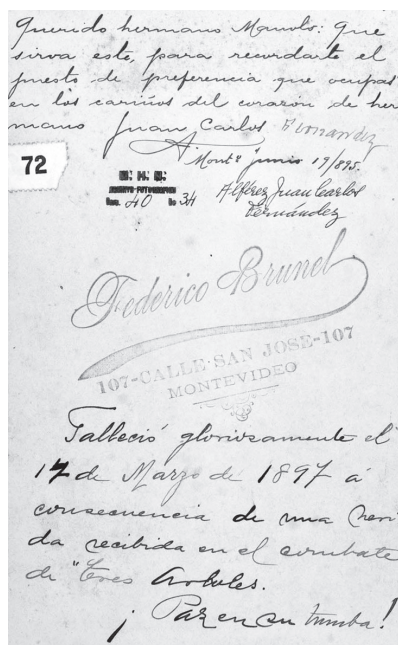 Querido hermano Manolo: Que
sirva este, para recordarte el
puesto de preferencia que ocupas
en los cariños del corazón de her
mano Juan Carlos Fernandez
Montº Junio 19/895.
72
Alférez Juan Carlos
Fernández
40 34
Federico Brunel
107-CALLE SAN JOSE-107
MONTEVIDEO
Falleció gloriosamente el
17 de Marzo de 1897 á
consecuencia de una heri
da recibida en el combate
de "tres Arboles.
¡Paz en su tumba!